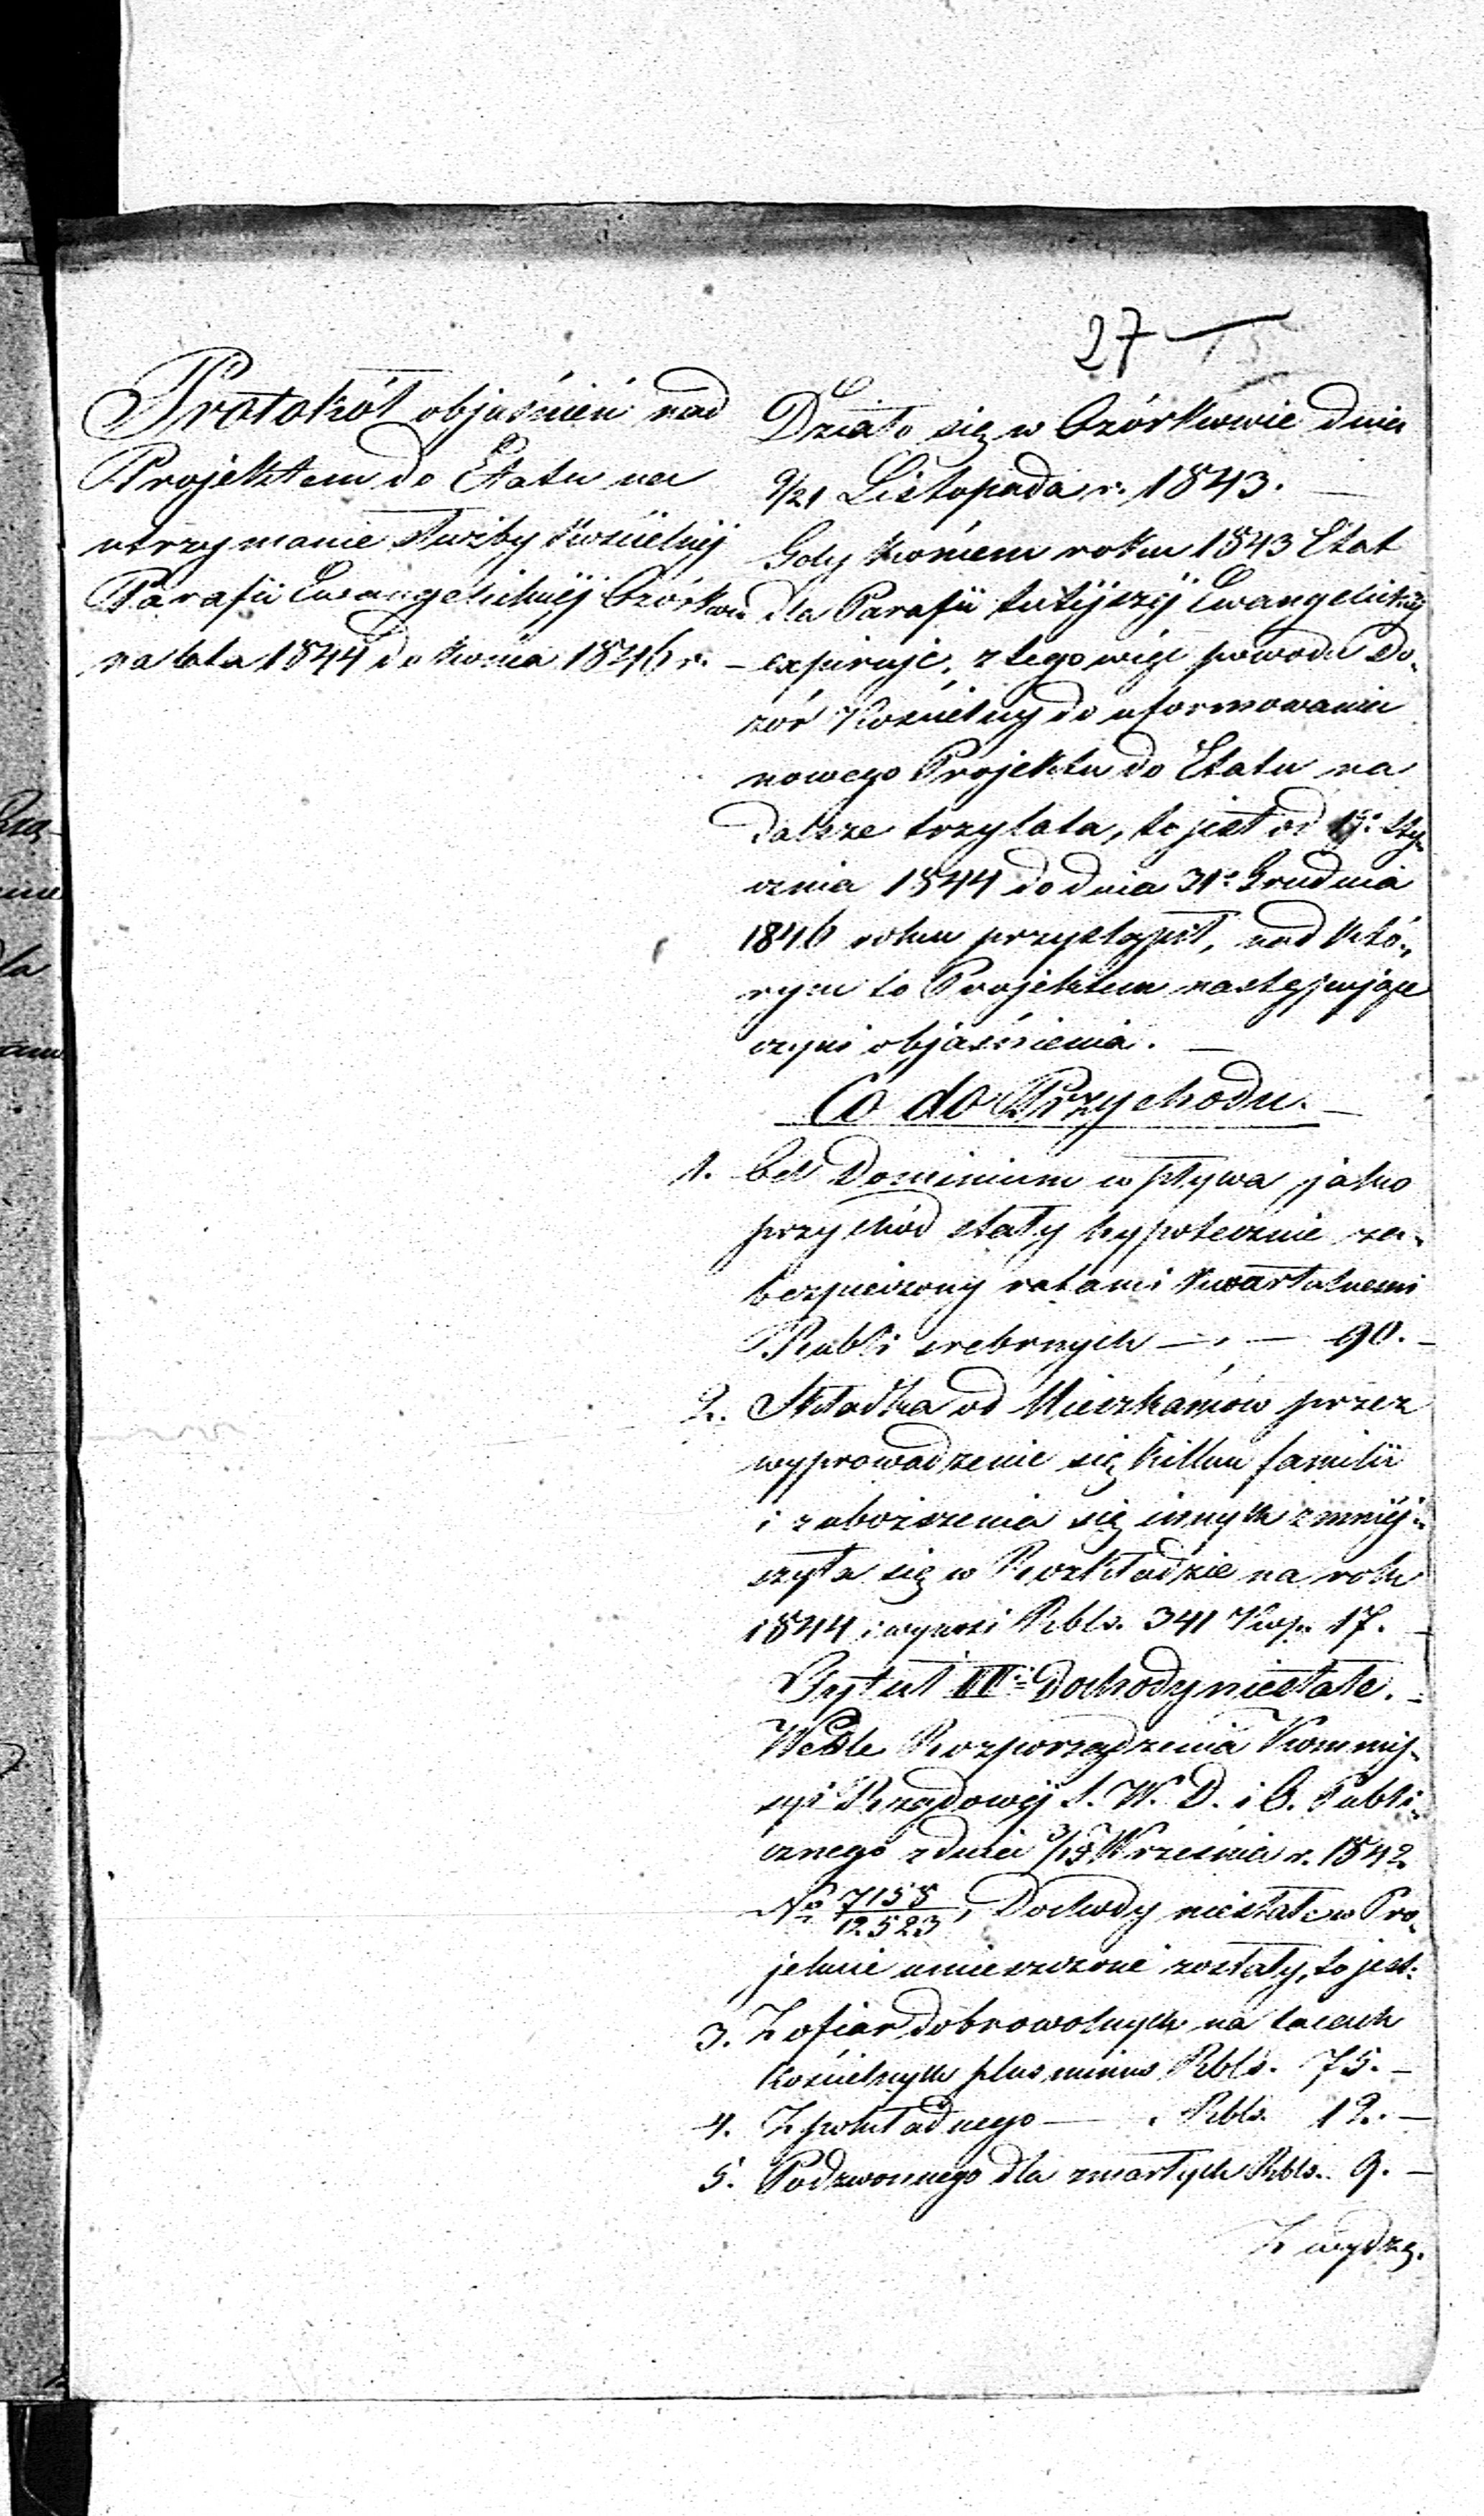 27
Protokół objaśnień nad
Projektem do Etatu na
utrzymanie służby Kościelnéj
Parafii Ewangelickiéj Ozórków
na lata 1844 do końca 1846 r. –
Działo się w Ozórkowie dnia
9/21 Listopada r. 1843. –
Gdy końcem roku 1843 Etat
dla Parafii tutéjszéj Ewangelickiéj
expiruje, z tego więc powodu Do-
zór Kościelny do uformowania
nowego Projektu do Etatu na
dalsze trzy lata, to jest od 1go Sty-
cznia 1844 do dnia 31o Grudnia
1846 roku przystąpił, nad któ-
rym to Projektem następujące
czyni objaśnienia. –
Co do Przychodu. –
1. Od Dominium wpływa jako
przychód stały hypotecznie za-
bezpieczony ratami kwartalnemi
Rubli srebrnych – . – 90. –
2. Składka od Mieszkańców przez
wyprowadzenie się kilku familii
i zubożenia się innych zmniéj-
szyła się w Rozkładzie na rok
1844 i wynosi Rbls. 341 Kop. 17. –
Tytuł III: Dochody niestałe. –
Wedle Rozporządzenia Kommis-
syi Rządowéj S. W. D. i O. Publi-
cznego z dnia 3/15 Września r. 1842
No 7158/12523, Dochody niestałe w Pro-
jekcie umieszczone zostały, to jest:
3. Z ofiar dobrowolnych na tacach
kościelnych plus minus Rbls. 75. –
4. Z pokładnego – . Rbls. 12. –
5. Podzwonnego dla zmarłych Rbls. 9. –
Z wydzę.